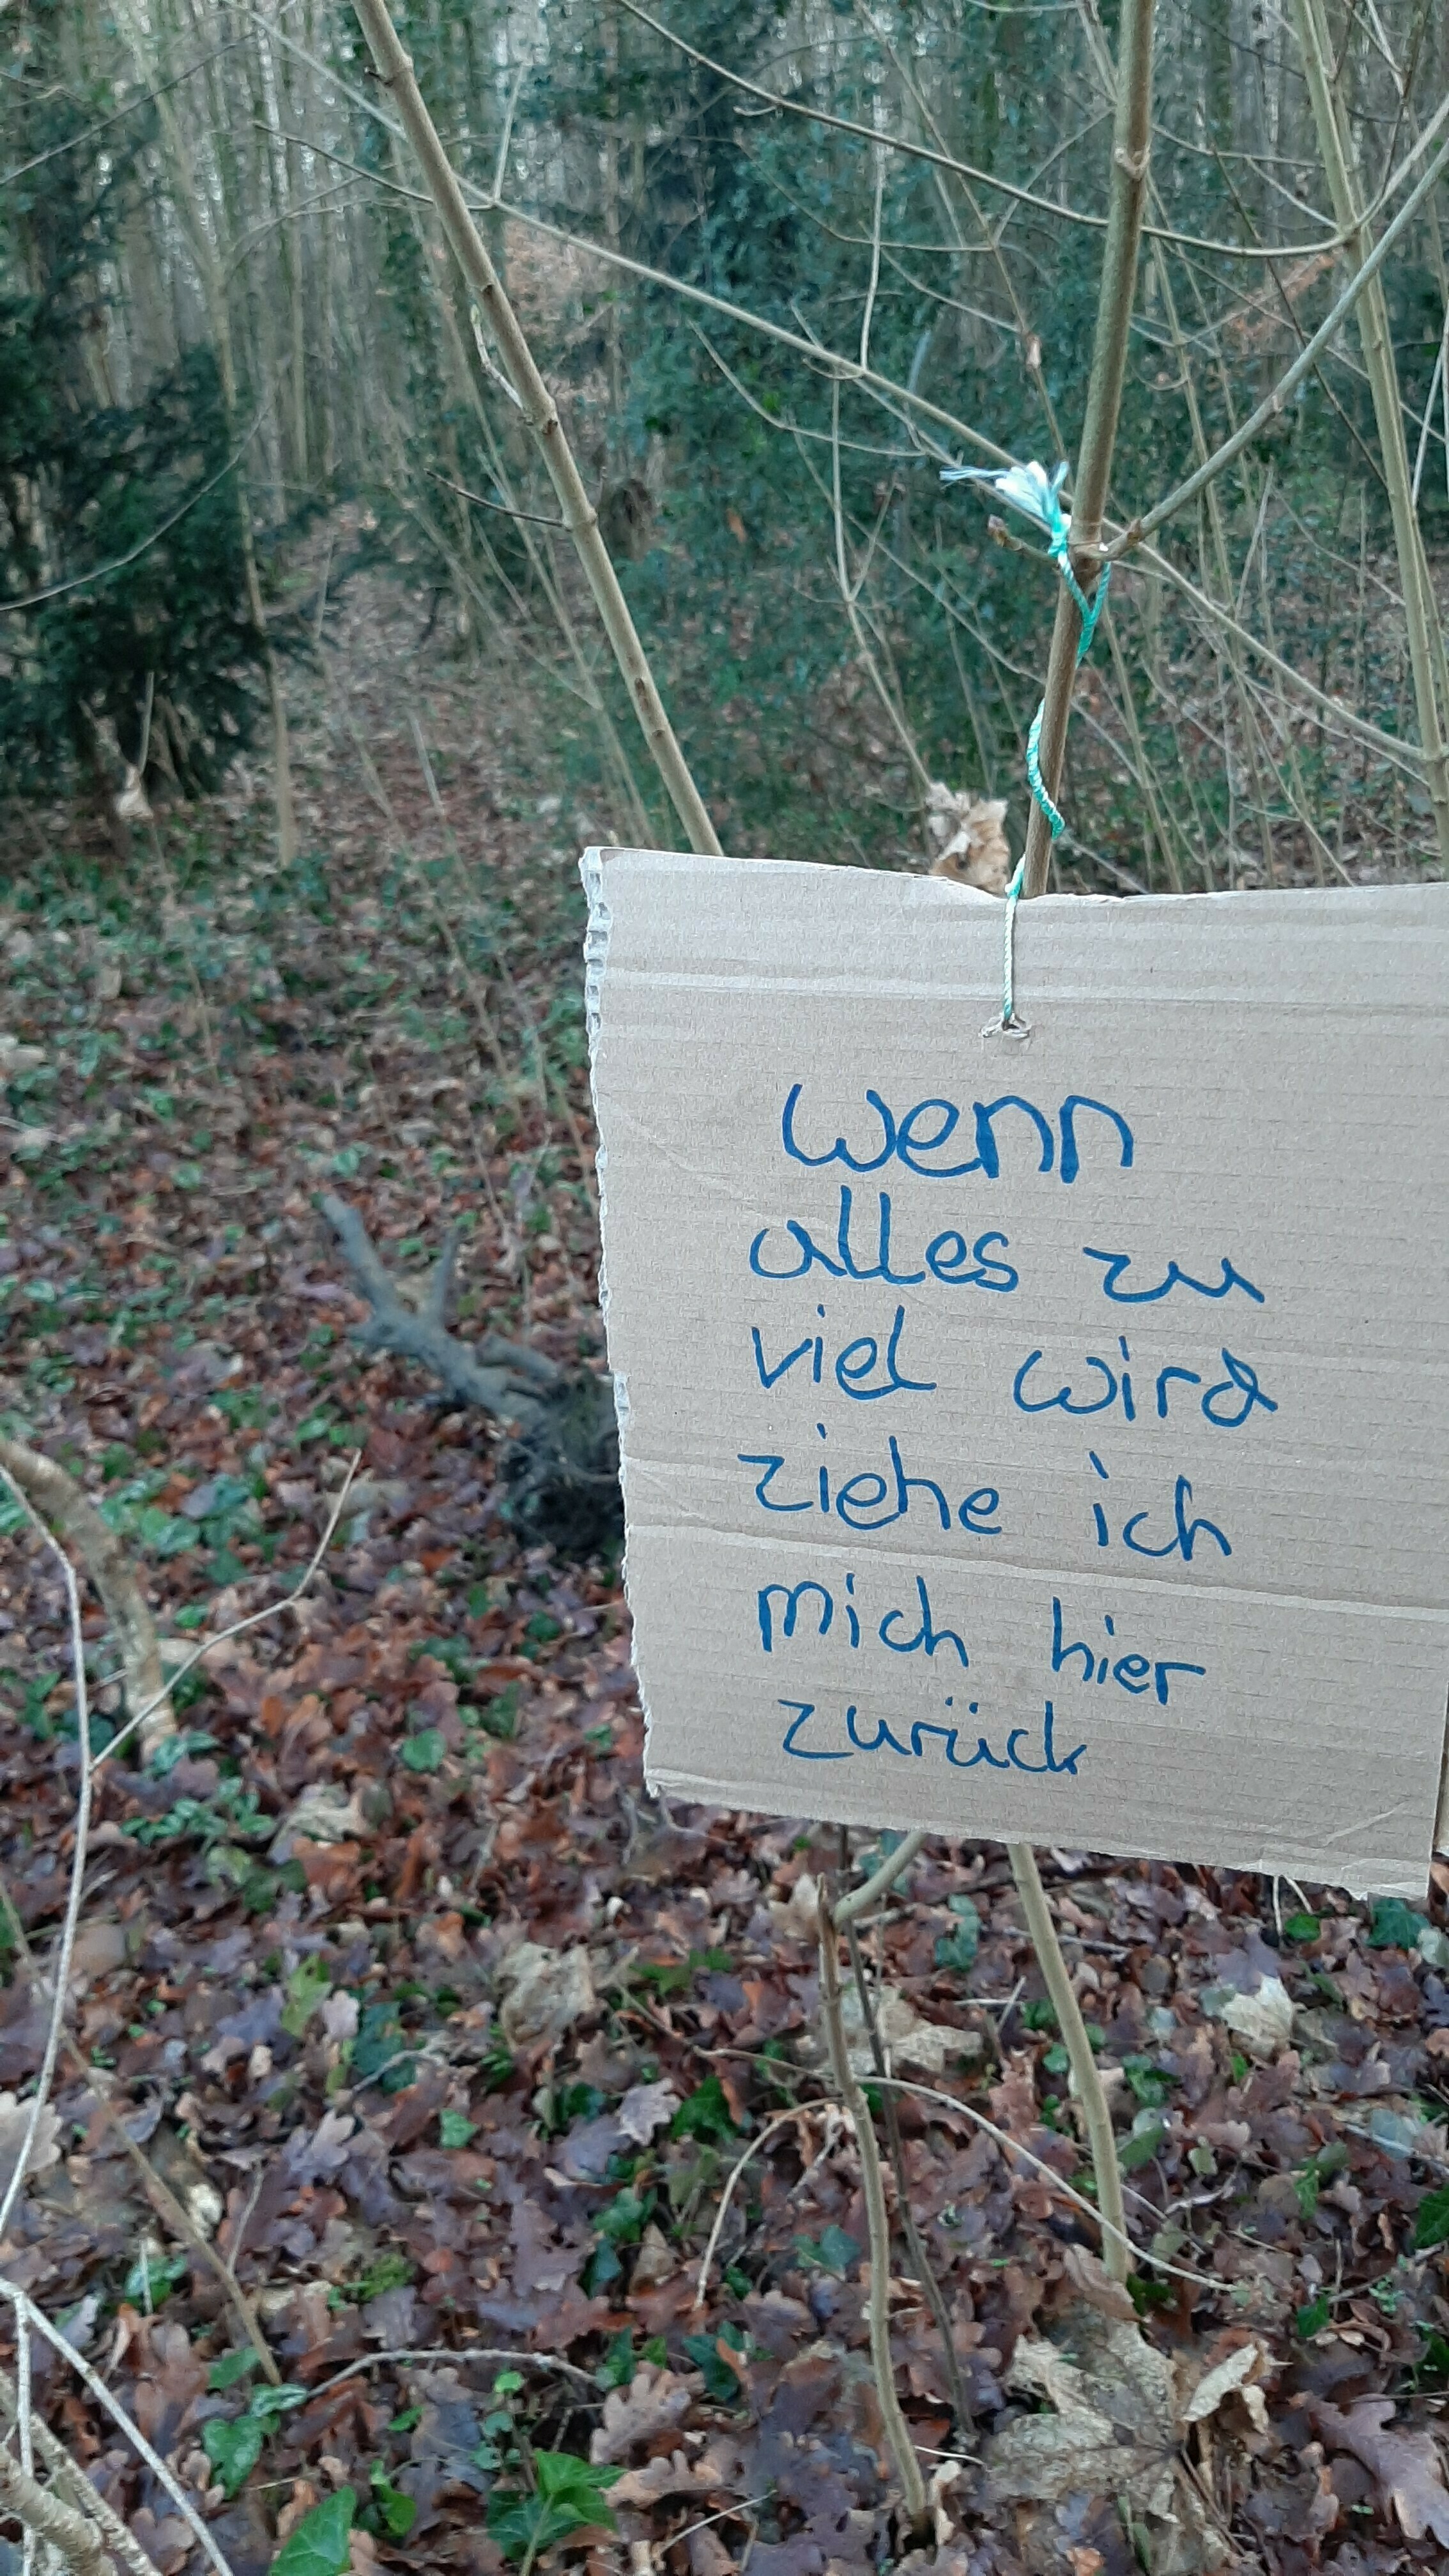 wenn
alles zu
viel wird
ziehe ich
mich hier
zurück